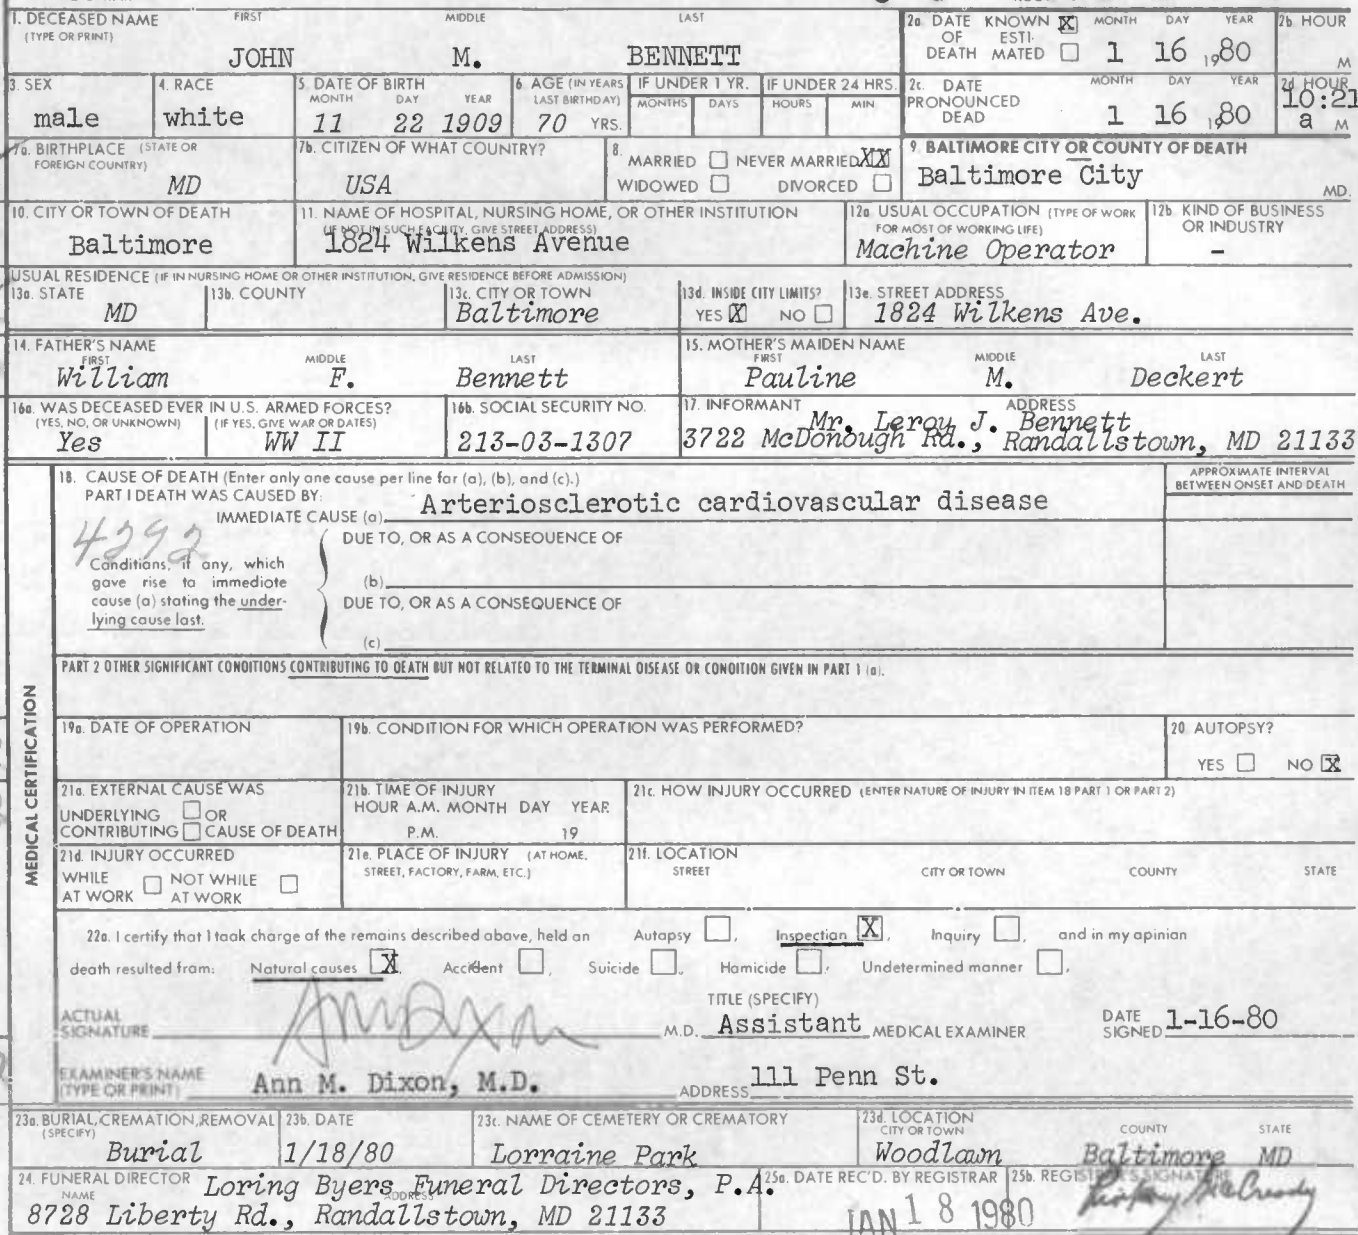 1. DECEASED NAME FIRST MIDDLE LAST
(TYPE OR PRINT)
JOHN M. BENNETT
2a. DATE OF DEATH KNOWN X ESTIMATED MONTH DAY YEAR
1 16 1980
2b. HOUR
M
3. SEX
male
4. RACE
white
5. DATE OF BIRTH
MONTH DAY YEAR
11 22 1909
6. AGE (IN YEARS LAST BIRTHDAY)
70 YRS.
IF UNDER 1 YR.
MONTHS DAYS
IF UNDER 24 HRS.
HOURS MIN
2c. DATE PRONOUNCED DEAD MONTH DAY YEAR
1 16 1980
2d. HOUR
10:21
a M
7a. BIRTHPLACE (STATE OR
FOREIGN COUNTRY)
MD
7b. CITIZEN OF WHAT COUNTRY?
USA
8.
MARRIED NEVER MARRIED XX
WIDOWED DIVORCED
9. BALTIMORE CITY OR COUNTY OF DEATH
Baltimore City
MD.
10. CITY OR TOWN OF DEATH
Baltimore
11. NAME OF HOSPITAL, NURSING HOME, OR OTHER INSTITUTION
(IF NOT IN SUCH FACILITY, GIVE STREET ADDRESS)
1824 Wilkens Avenue
12a. USUAL OCCUPATION (TYPE OF WORK
FOR MOST OF WORKING LIFE)
Machine Operator
12b. KIND OF BUSINESS
OR INDUSTRY
-
USUAL RESIDENCE (IF IN NURSING HOME OR OTHER INSTITUTION, GIVE RESIDENCE BEFORE ADMISSION)
13a. STATE
MD
13b. COUNTY
13c. CITY OR TOWN
Baltimore
13d. INSIDE CITY LIMITS?
YES X NO
13e. STREET ADDRESS
1824 Wilkens Ave.
14. FATHER'S NAME
FIRST MIDDLE LAST
William F. Bennett
15. MOTHER'S MAIDEN NAME
FIRST MIDDLE LAST
Pauline M. Deckert
16a. WAS DECEASED EVER IN U.S. ARMED FORCES?
(YES, NO, OR UNKNOWN) (IF YES, GIVE WAR OR DATES)
Yes WW II
16b. SOCIAL SECURITY NO.
213-03-1307
17. INFORMANT ADDRESS
Mr. Leroy J. Bennett
3722 McDonough Rd., Randallstown, MD 21133
MEDICAL CERTIFICATION
18. CAUSE OF DEATH (Enter only one cause per line for (a), (b), and (c).)
APPROXIMATE INTERVAL
BETWEEN ONSET AND DEATH
PART I DEATH WAS CAUSED BY:
IMMEDIATE CAUSE (a) Arteriosclerotic cardiovascular disease
4292
DUE TO, OR AS A CONSEQUENCE OF
Conditions, if any, which
gave rise to immediate
cause (a) stating the under-
lying cause last.
(b)
DUE TO, OR AS A CONSEQUENCE OF
(c)
PART 2 OTHER SIGNIFICANT CONDITIONS CONTRIBUTING TO DEATH BUT NOT RELATED TO THE TERMINAL DISEASE OR CONDITION GIVEN IN PART 1 (a).
19a. DATE OF OPERATION
19b. CONDITION FOR WHICH OPERATION WAS PERFORMED?
20. AUTOPSY?
YES NO X
21a. EXTERNAL CAUSE WAS
UNDERLYING OR
CONTRIBUTING CAUSE OF DEATH
21b. TIME OF INJURY
HOUR A.M. MONTH DAY YEAR
P.M. 19
21c. HOW INJURY OCCURRED (ENTER NATURE OF INJURY IN ITEM 18 PART 1 OR PART 2)
21d. INJURY OCCURRED
WHILE AT WORK NOT WHILE AT WORK
21e. PLACE OF INJURY (AT HOME,
STREET, FACTORY, FARM, ETC.)
21f. LOCATION
STREET CITY OR TOWN COUNTY STATE
22a. I certify that I took charge of the remains described above, held an Autopsy , Inspection X, Inquiry , and in my opinion
death resulted from: Natural causes X, Accident , Suicide , Homicide , Undetermined manner .
ACTUAL
SIGNATURE Ann Dixon M.D.
TITLE (SPECIFY)
Assistant MEDICAL EXAMINER
DATE
SIGNED 1-16-80
EXAMINER'S NAME
(TYPE OR PRINT) Ann M. Dixon, M.D.
ADDRESS 111 Penn St.
23a. BURIAL, CREMATION, REMOVAL
(SPECIFY)
Burial
23b. DATE
1/18/80
23c. NAME OF CEMETERY OR CREMATORY
Lorraine Park
23d. LOCATION
CITY OR TOWN COUNTY STATE
Woodlawn Baltimore MD
24. FUNERAL DIRECTOR
NAME ADDRESS
Loring Byers Funeral Directors, P.A.
8728 Liberty Rd., Randallstown, MD 21133
25a. DATE REC'D. BY REGISTRAR
JAN 18 1980
25b. REGISTRAR'S SIGNATURE